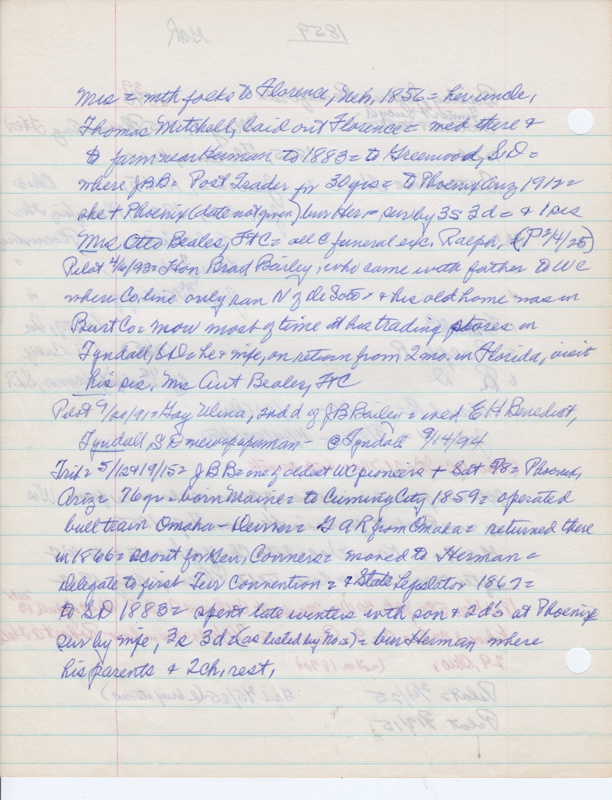 Mrs = with folks to Florence, Neb, 1856 = her uncle,
Thomas Mitchell, laid out Florence = med there &
to farm near Herman to 1883 = to Greenwood, S.D. =
where JBB = Post Trader for 30 yrs = to Phoenix Ariz 1912 =
she + Phoenix (date not given) bur Her. = sur by 3s 3d = & 1 sis
Mrs Otto Beales, F+C = all @ funeral exc. Ralph, (P 2/4/25)
Pilot 4/6/93 = Hon Brad Bailey, who came with father to WC
when Co. line only ran N of De Soto, & his old home was in
Burt Co = now most of time at his trading stores in
Tyndall, SD = he & wife, on return from 2 mo. in Florida, visit
his sis, Mrs Aut Beales, F+C
Pilot = Gay Ulina, 2nd d of J B Bailey = med E H Benedict,
Tyndall, SD newspaperman - @ Tyndall 9/14/94
Trib = 1915 = JBB = one of oldest WC pioneers + Sat 5/8 = Phoenix,
Ariz = 76 yrs = born Maine = to Cuming City 1859 = operated
bull train Omaha - Denver = G A R from Omaha = returned there
in 1866 = scout for Gen, Connors = moved to Herman =
delegate to first Terr Convention = & State Legislator 1867 =
to SD 1883 = spent late winters with son & 2 d's at Phoenix
sur by wife, 3s 3d (as listed by Mrs) = bur Herman where
his parents & 2 ch, rest,